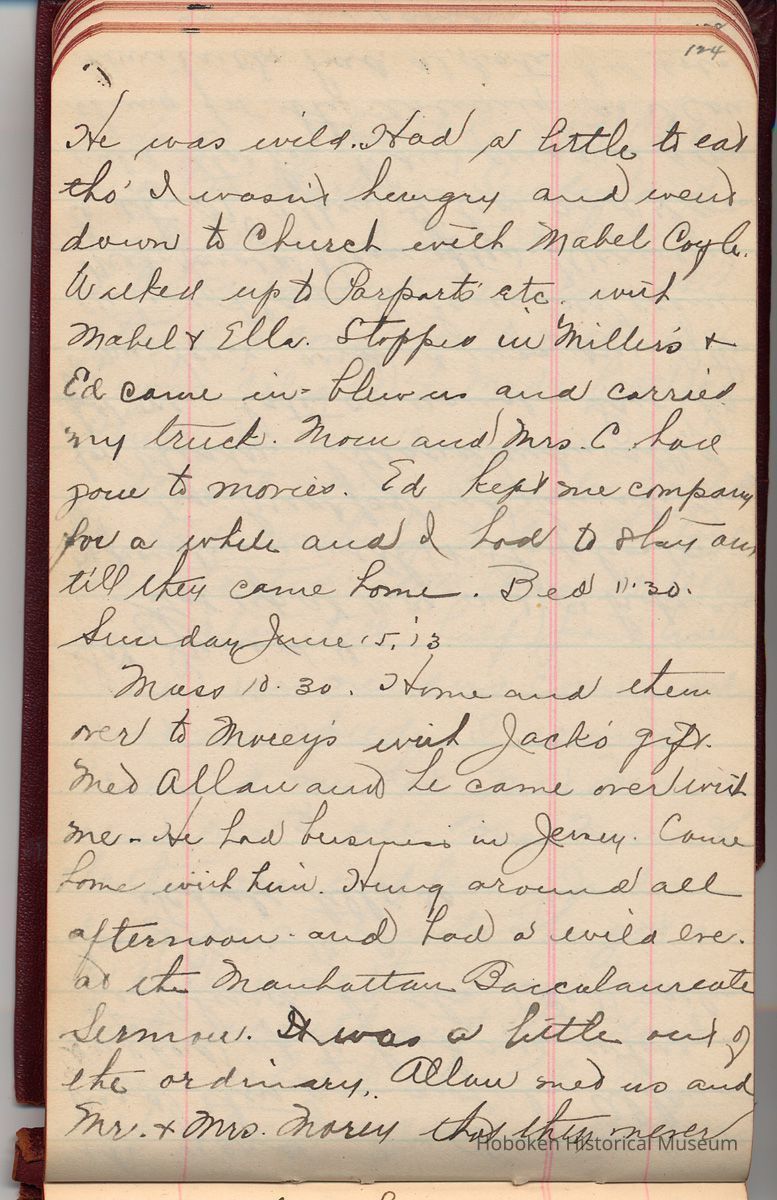 124
He was wild. Had a little to eat
tho' I wasn't hungry and went
down to Church with Mabel Coyle.
Walked up to Parparts etc. with
Mabel & Ella. Stopped in Miller's &
Ed came in - blew us and carried
my truck. Mom and Mrs. C had
gone to movies. Ed kept me company
for a while and I had to stay
till they came home. Bed 11.30.
Sunday June 15, '13
Mass 10.30. Home and then
over to Morey's with Jack's gift.
Met Allan and he came over with
me - He had business in Jersey. Came
home with him. Hung around all
afternoon and had a wild eve.
at the Manhattan Baccalaureate
Sermon. It was a little out of
the ordinary. Allan met us and
Mr. & Mrs. Morey they never
Hoboken Historical Museum